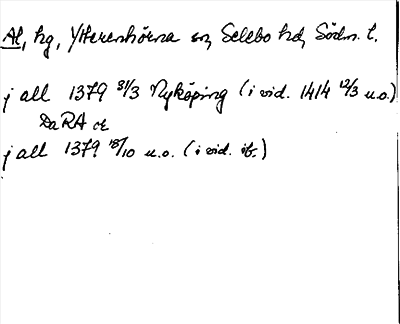 Al, hg, Ytterenhörna sn, Selebo hd, Södm. l.
j all 1379 31/3 Nyköping (i vid. 1414 12/3 u.o.)
DaRA or
j all 1379 18/10 u.o. (i vid. ib.)